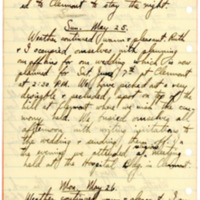 ed to Clermont to stay the night.
Sun. May 25.
Weather continued warm & pleasant. Ruth
& I occupied ourselves with planning
on affairs for our wedding which is now
planned for Sat June 7th at Clermont
at 2:30 P.M. We have picked out a very
& secluded spot on top of the
hill at Claremont where we wish the cere-
mony held. We busied ourselves all
afternoon with writing invitations to
the wedding & sending them off. In
the evening we attended a meeting
held at the Hospital Bldg in Clermont.
Mon. May 26.
Weather continued warm & pleasant